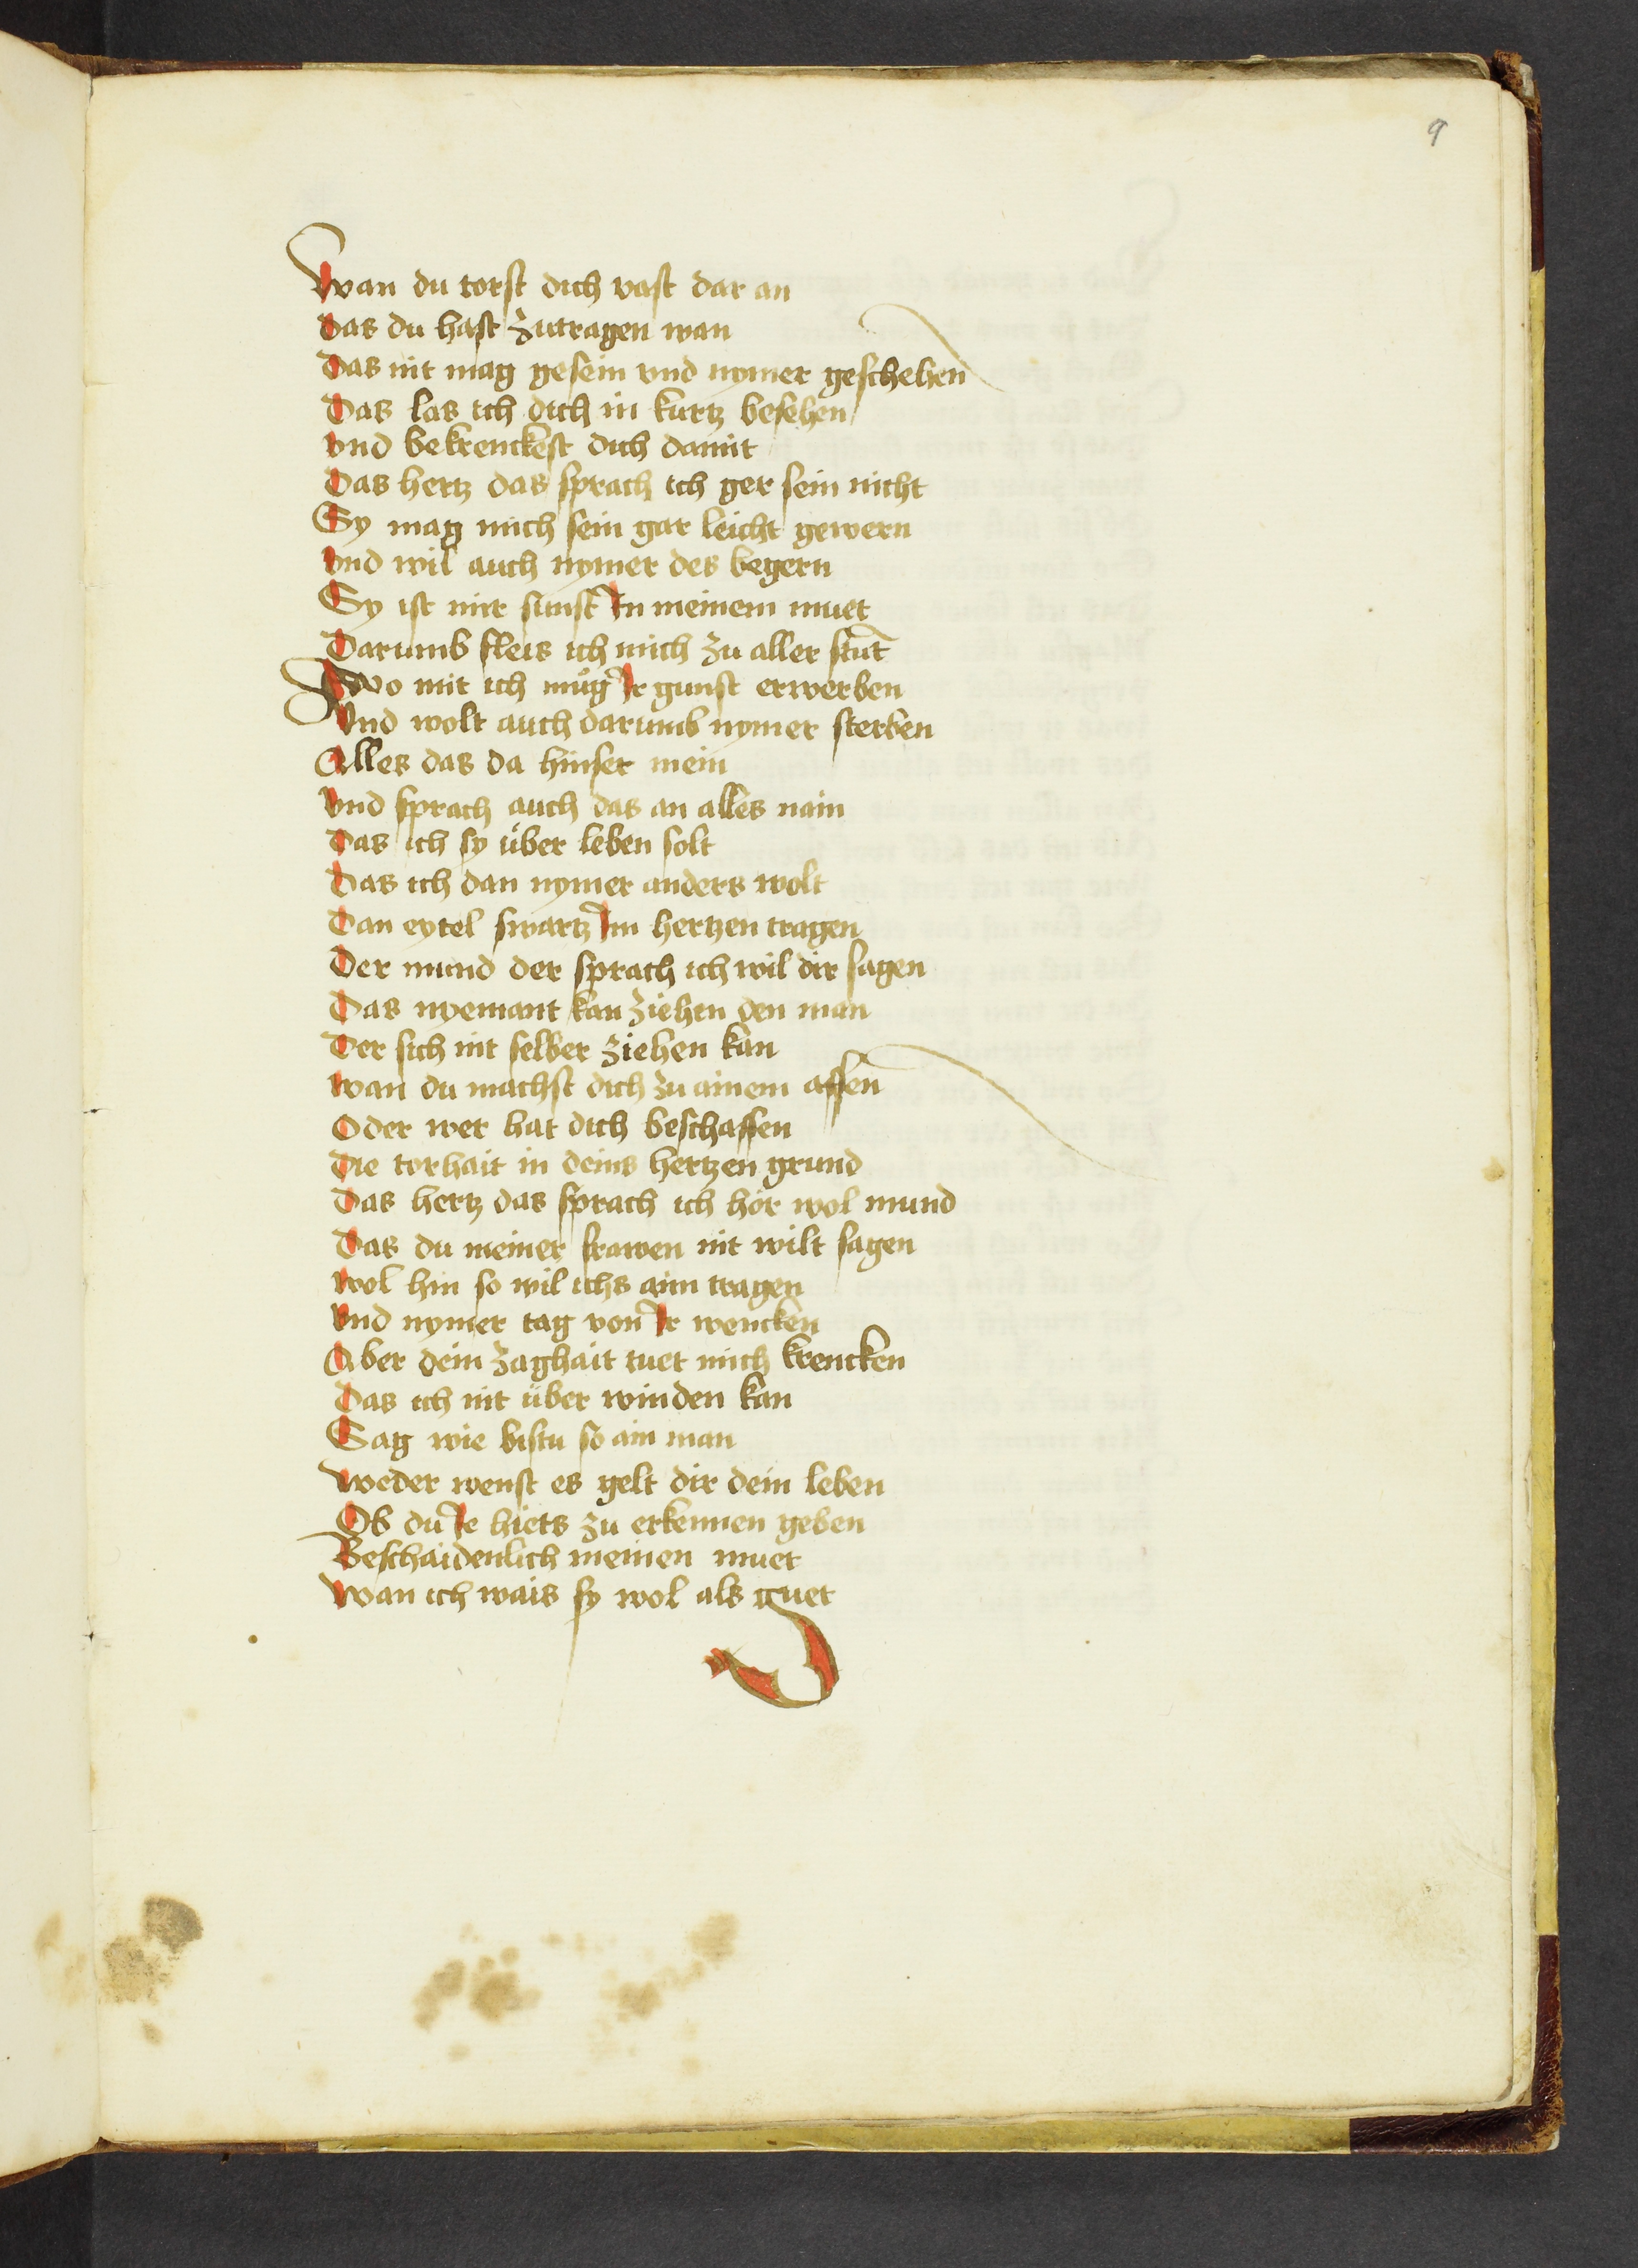 9
Wan du torst dich vast dar an
Das du hast zutragen wan
Das nit mag gesein vnd nymer geschehen
Das las ich dich in kurtz besehen
vnd bekrenckest dich damit
Das hertz das sprach ich ger sein nicht
Sy mag mich sein gar leicht gewern
vnd wil auch nymer des begern
Sy ist mir sunst In meinem muet
Darumb fleis ich mich zu aller stūt
Wo mit ich müg Ir gunst erwerben
Vnd wolt auch darumb nymer sterben
Alles das da hinser mein
vnd sprach auch das an alles nain
Das ich sy über leben solt
Das ich dan nymer anders wolt
Dan eytel swartz Im hertzen tragen
Der mund der sprach ich wil dir sagen
Das nyemant kan ziehen den man
Der sich nit selber ziehen kan
wan du machst dich zu ainem affen
Oder wer hat dich beschaffen
die torhait in deins hertzen grund
Das hertz das sprach ich hör wol mund
Das du meiner frawen nit wilt sagen
wol hin so wil ichs ain tragen
vnd nymer tag von Ir wencken
Aber dein zaghait tuet mich krencken
Das ich nit über winden kan
Sag wie bistu so ain man
weder wenst es gelt dir dein leben
Ob du Ie hiets zu erkennen geben
Beschaidenlich meinen muet
Wan ich wais sy wol als guet